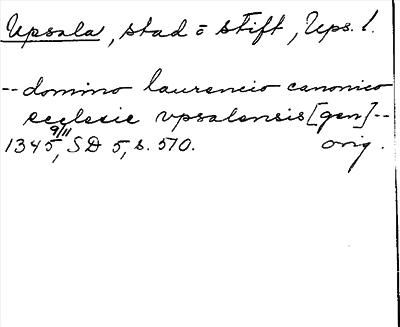 Upsala, stad o stift, Ups. l.
-- domino laurencio canonico
ecclesie vpsalensis [gen] --
1345 9/11, SD 5, s. 570. orig.